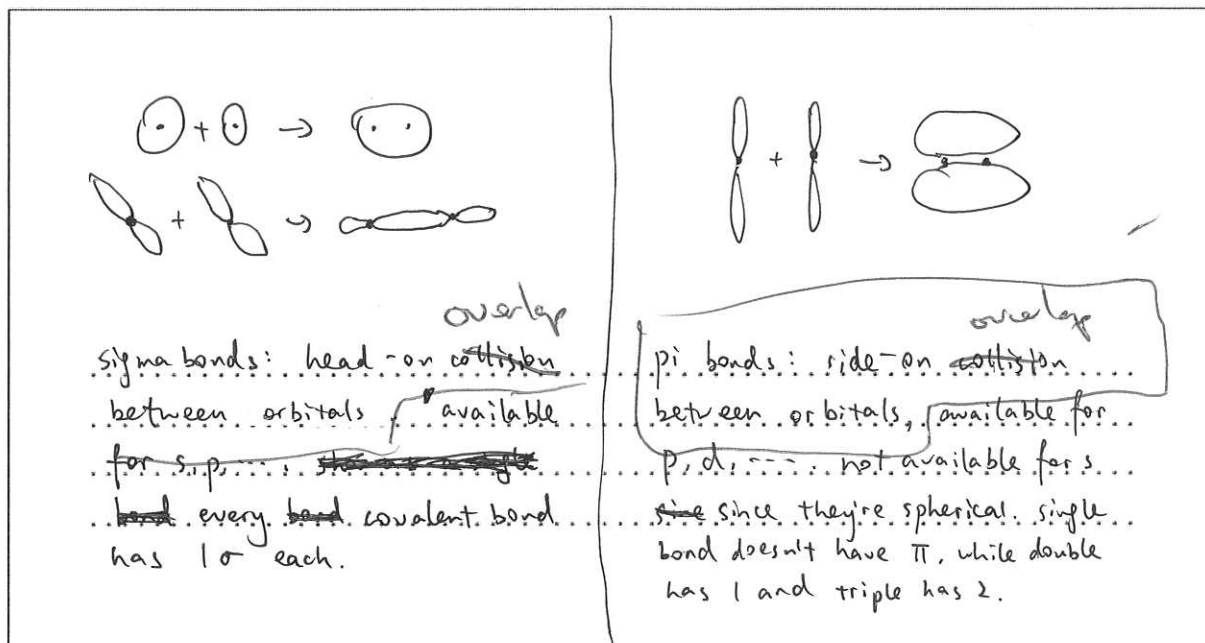 overlap
sigma bonds: head-on collision
between orbitals, available
for s, p, ...
every covalent bond
has 1 σ each.
overlap
pi bonds: side-on collision
between orbitals, available for
p, d, .... not available for s
since they're spherical. single
bond doesn't have π, while double
has 1 and triple has 2.